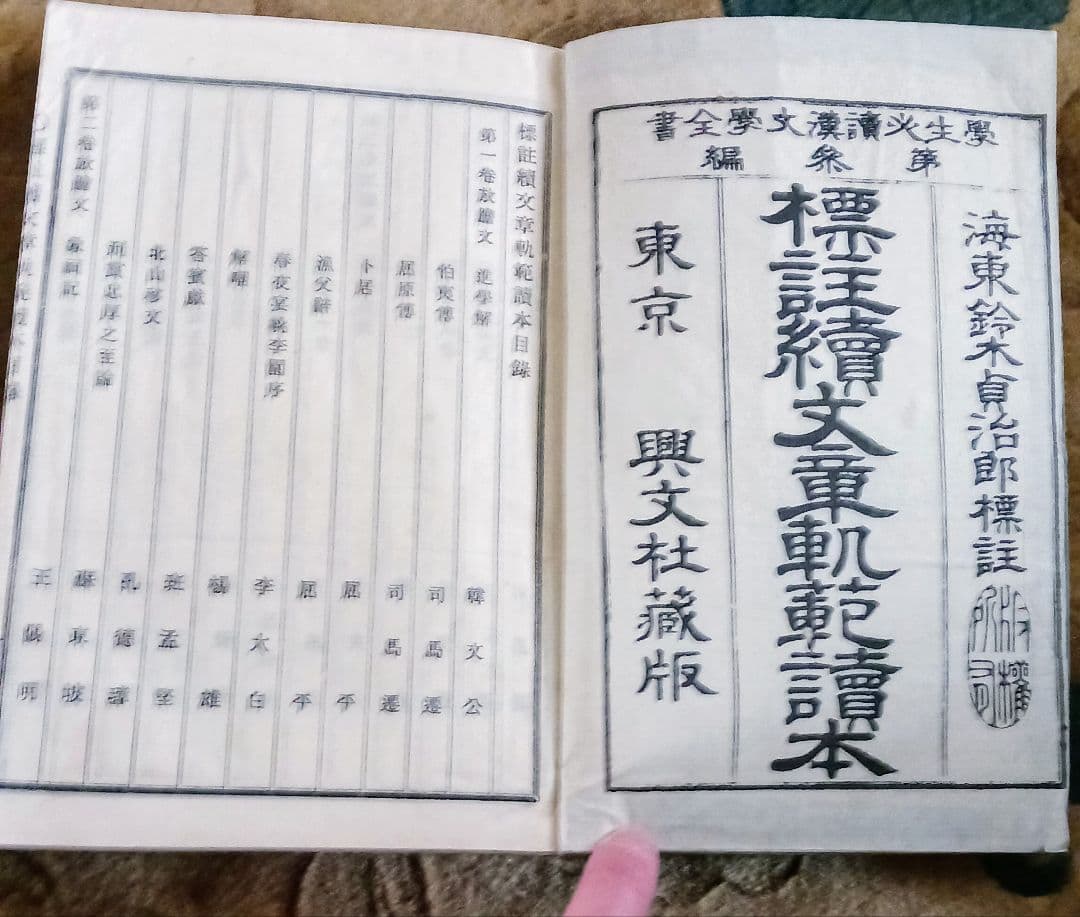 學生必讀漢文學全書
第參編
海東鈴木貞治郎標註
版權所有
標註續文章軌範讀本
東京 興文社藏版
標註續文章軌範讀本目錄
第一卷放膽文 進學解 韓文公
伯夷傳 司馬遷
屈原傳 司馬遷
卜居 屈平
漁父辭 屈平
春夜宴桃李園序 李太白
解嘲 楊雄
答賓戲 班孟堅
北山移文 孔德璋
刑賞忠厚之至論 蘇東坡
第二卷放膽文 尊經記 王陽明